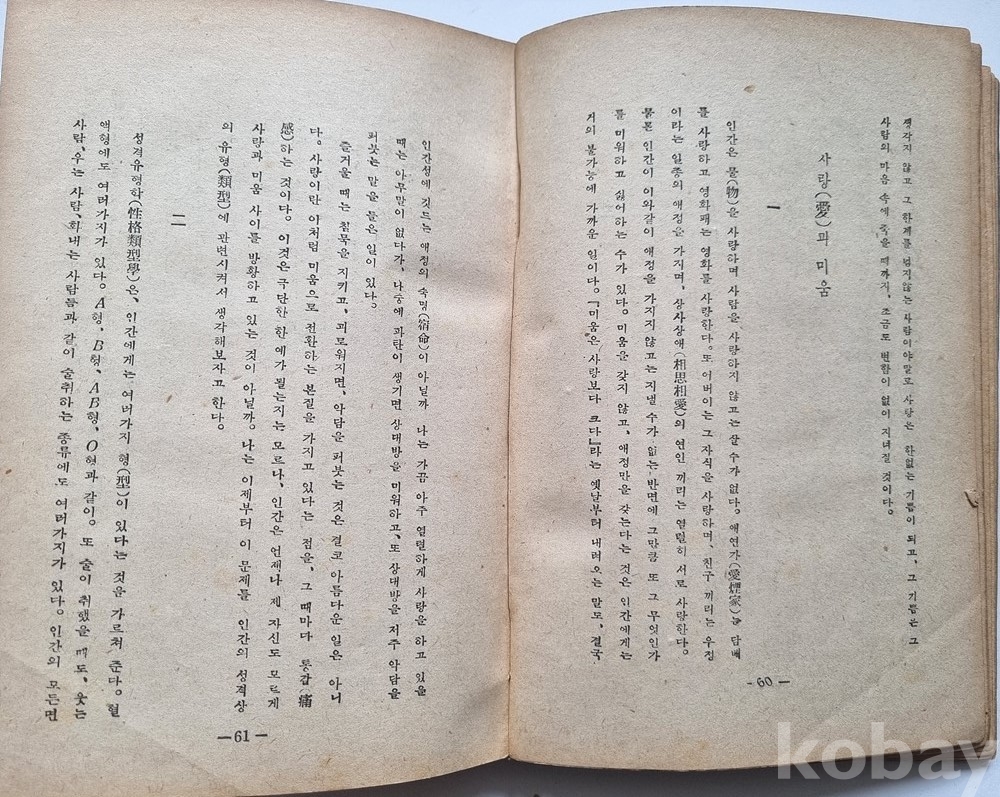 생각지 않고 그 한계를 넘지않는 사람이야말로 사랑은 한없는 기쁨이 되고, 그 기쁨은 그
사람의 마음 속에 죽을 때까지, 조금도 변함이 없이 지녀질 것이다.
사랑(愛)과 미움
一
인간은 물(物)을 사랑하며 사람을 사랑하지 않고는 살 수가 없다. 애연가(愛煙家)는 담배
를 사랑하고 영화패는 영화를 사랑한다. 또 어버이는 그 자식을 사랑하며, 친구 끼리는 우정
이라는 일종의 애정을 가지며, 상사상애(相思相愛)의 연인 끼리는 열렬히 서로 사랑한다.
물론 인간이 이와같이 애정을 가지지 않고는 지낼 수가 없는 반면에 그만큼 또 그 무엇인가
를 미워하고 싫어하는 수가 있다. 미움을 갖지 않고, 애정만을 갖는다는 것은 인간에게는
거의 불가능에 가까운 일이다. 『미움은 사랑보다 크다』라는 옛날부터 내려오는 말도, 결국
— 60 —
인간성에 깃드는 애정의 숙명(宿命)이 아닐까 나는 가끔 아주 열렬하게 사랑을 하고 있을
때는 아무말이 없다가, 나중에 파탄이 생기면 상대방을 미워하고, 또 상대방을 저주 악담을
퍼붓는 말을 들은 일이 있다.
즐거울 때는 침묵을 지키고, 괴로워지면, 악담을 퍼붓는 것은 결코 아름다운 일은 아니
다. 사랑이란 이처럼 미움으로 전환하는 본질을 가지고 있다는 점을, 그 때마다 통감(痛
感)하는 것이다. 이것은 극단한 한 예가 될는지는 모르나, 인간은 언제나 제 자신도 모르게
사랑과 미움 사이를 방황하고 있는 것이 아닐까. 나는 이제부터 이 문제를 인간의 성격상
의 유형(類型)에 관련시켜서 생각해보자고 한다.
二
성격유형학(性格類型學)은, 인간에게는 여러가지 형(型)이 있다는 것을 가르처 준다. 혈
액형에도 여러가지가 있다. A형, B형, AB형, O형과 같이. 또 술이 취했을 때도, 웃는
사람, 우는 사람, 화내는 사람들과 같이 술취하는 종류에도 여러가지가 있다. 인간의 모든면
— 61 —
kobay